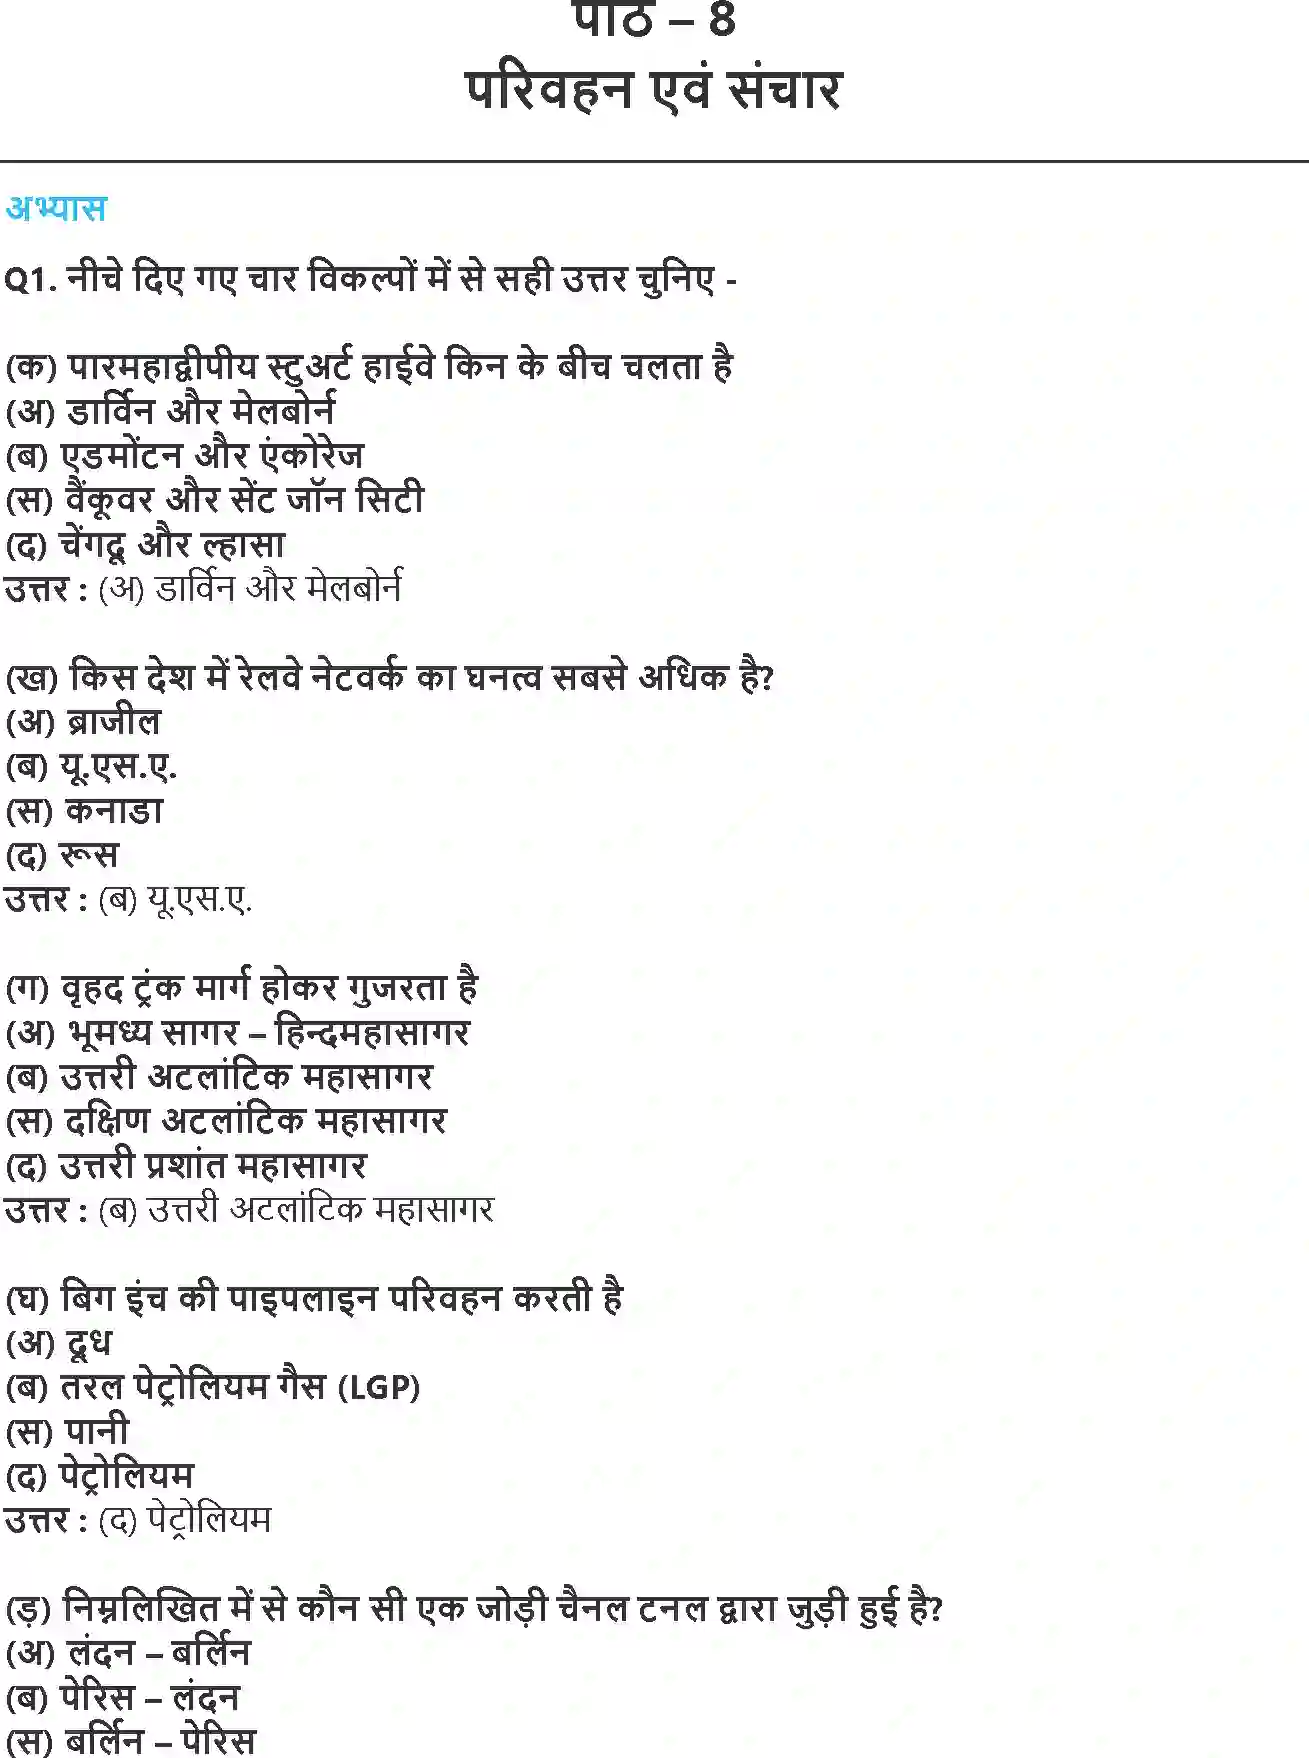 पाठ – 8
परिवहन एवं संचार
अभ्यास
Q1. नीचे दिए गए चार विकल्पों में से सही उत्तर चुनिए -
(क) पारमहाद्वीपीय स्टुअर्ट हाईवे किन के बीच चलता है
(अ) डार्विन और मेलबोर्न
(ब) एडमोंटन और एंकोरेज
(स) वैंकूवर और सेंट जॉन सिटी
(द) चेंगदू और ल्हासा
उत्तर : (अ) डार्विन और मेलबोर्न
(ख) किस देश में रेलवे नेटवर्क का घनत्व सबसे अधिक है?
(अ) ब्राजील
(ब) यू.एस.ए.
(स) कनाडा
(द) रूस
उत्तर : (ब) यू.एस.ए.
(ग) वृहद ट्रंक मार्ग होकर गुजरता है
(अ) भूमध्य सागर – हिन्दमहासागर
(ब) उत्तरी अटलांटिक महासागर
(स) दक्षिण अटलांटिक महासागर
(द) उत्तरी प्रशांत महासागर
उत्तर : (ब) उत्तरी अटलांटिक महासागर
(घ) बिग इंच की पाइपलाइन परिवहन करती है
(अ) दूध
(ब) तरल पेट्रोलियम गैस (LGP)
(स) पानी
(द) पेट्रोलियम
उत्तर : (द) पेट्रोलियम
(ड़) निम्नलिखित में से कौन सी एक जोड़ी चैनल टनल द्वारा जुड़ी हुई है?
(अ) लंदन – बर्लिन
(ब) पेरिस – लंदन
(स) बर्लिन – पेरिस